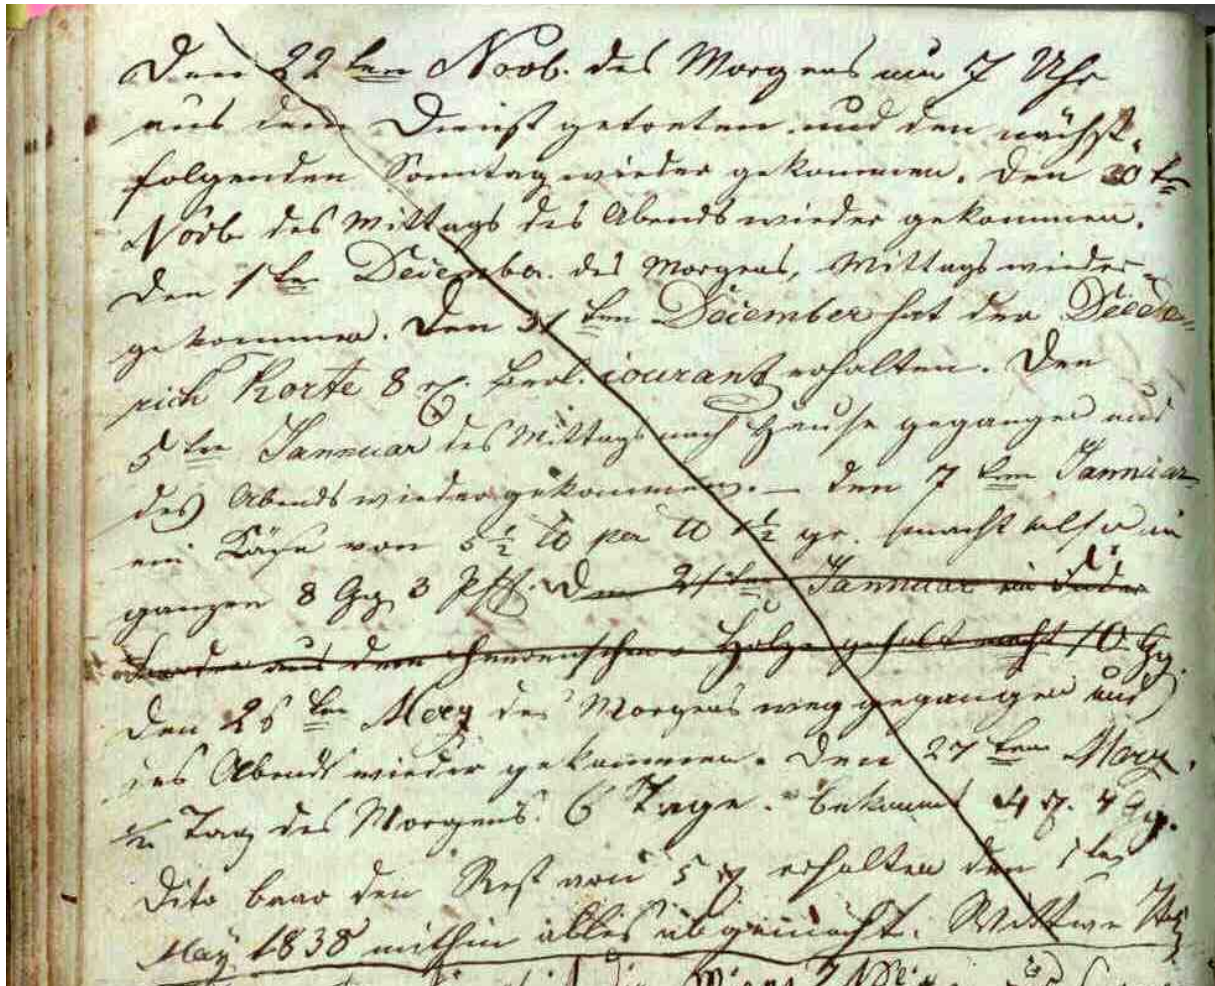 Den 22ten Novb. des Morgens um 7 Uhr
aus dem Dienst getreten und den nächst
folgenden Sonntag wieder gekommen. Den 30te
Novb des Mittags des Abends wieder gekommen.
Den 1ten December. des Morgens, Mittags wieder
gekommen. Den 31ten December hat der Diede=
rich Korte 8 rt. courant erhalten. Den
5ten Jannuar des Mittags nach Hause gegangen und
des Abends wieder gekommen. – den 7ten Jannuar
ein Käse von 5 1/2 ℔ per ℔ 1 1/2 gr. macht also im
ganzen 8 Gg 3 Pf. Den 21ten Jannuar ein Fuder
aus dem Holze geholt macht 10 Gg.
Den 25ten Merz des Morgens weg gegangen und
des Abends wieder gekommen. Den 27ten Merz
1/2 Tag des Morgens. 6 Tage. bekommt 4 rt. 4 Gg.
Dito baar den Rest von 5 rt erhalten den 1ten
May 1838 mithin alles abgemacht. Wittwe